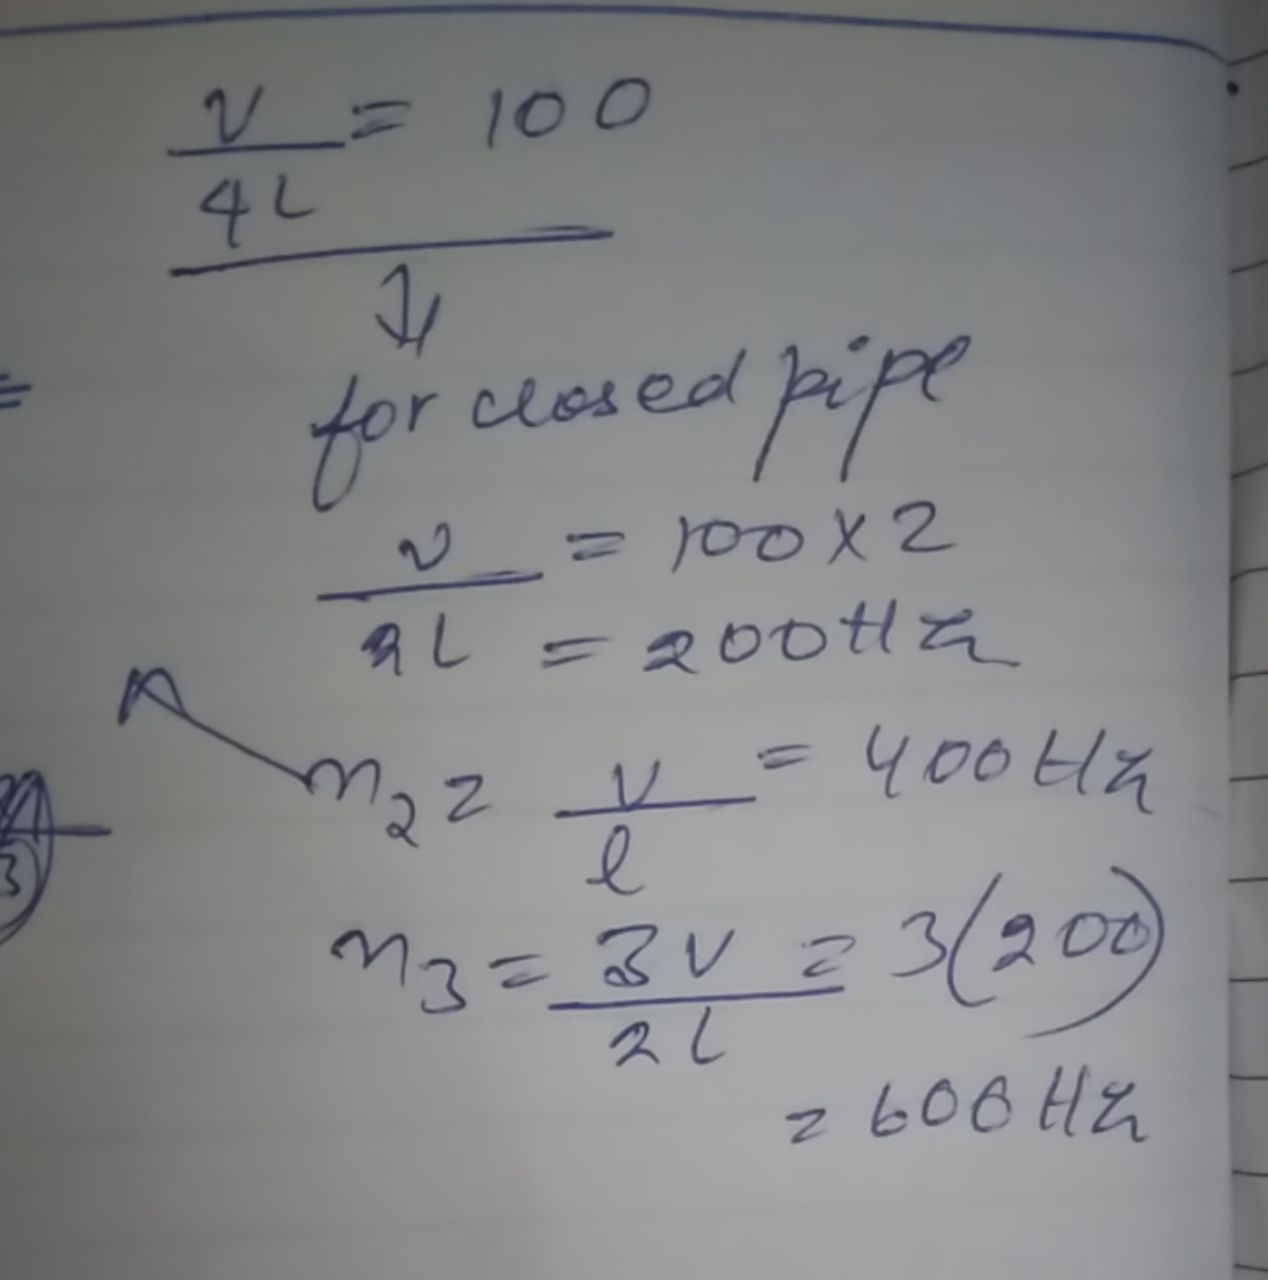 v/4L = 100
↓
for closed pipe
v/2L = 100 x 2
= 200 Hz
n₂ = v/l = 400 Hz
n₃ = 3v/2L = 3(200)
= 600 Hz
=
3